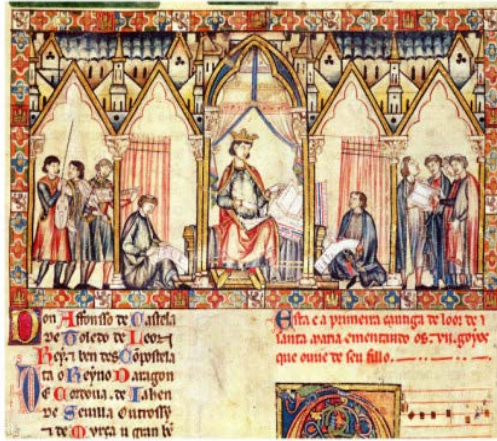 Don Affonsso de Castela
de Toledo de Leon
Rey τ ben des Conpostela
ta o Reyno Daragon
De Cordoua de Iahen
de Seuilla outrossy
τ de Murça u gran bē
Esta e a primeira cantiga de loor de
santa maria ementando os .vij. goyos
que ouue de seu fillo.